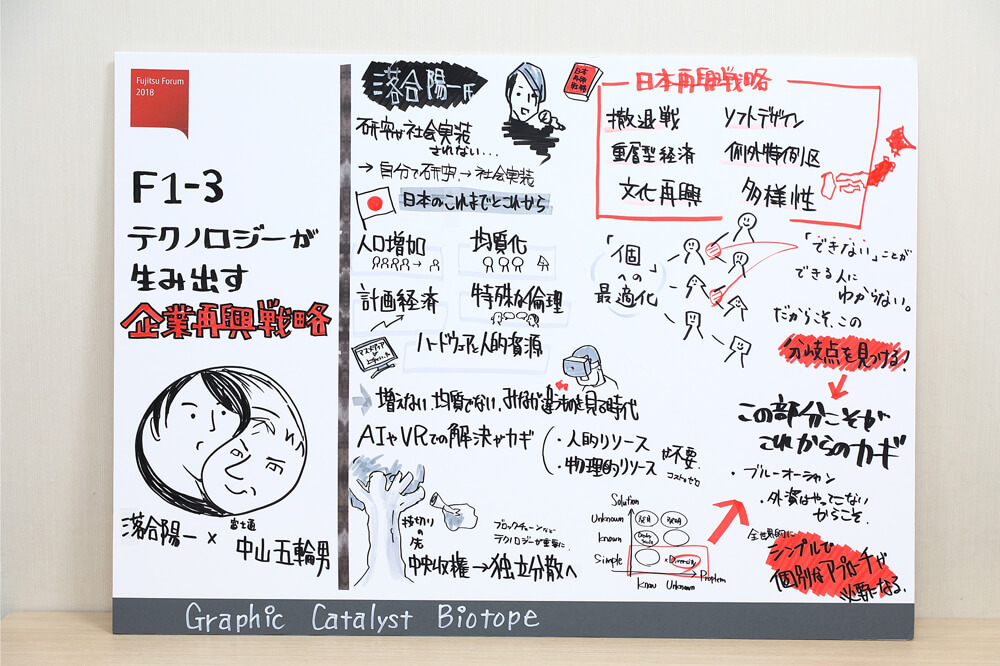 Fujitsu Forum
2018
F1-3
テクノロジーが
生み出す
企業再興戦略
落合陽一 × 富士通 中山五輪男
落合陽一氏
日本再興戦略
研究が社会実装
されない...
→ 自分で研究 → 社会実装
日本のこれまでとこれから
人口増加
均質化
計画経済
特殊な倫理
マスメディア
ハードウェアと人的資源
増えない、均質でない、みんなが違うものを見る時代
AIやVRでの解決がカギ
・人的リソース
・物理的リソース
が不要
コストゼロ
枝切り
の
先
ブロックチェーンなど
テクノロジーが重要に
中央収権→独立分散へ
日本再興戦略
撤退戦
ソフトデザイン
重層型経済
例外特例区
文化再興
多様性
「個」
への
最適化
「できない」ことが
できる人に
わからない。
だからこそ、この
分岐点を見つける!
この部分こそが
これからのカギ
・ブルーオーシャン
・外資はやってこない
からこそ.
全世界的に
シンプルで
個別なアプローチが
必要になる.
Solution
Unknown
発見
発明
known
Simple
×Diversity
Know
Unknown
Problem
Graphic Catalyst Biotope